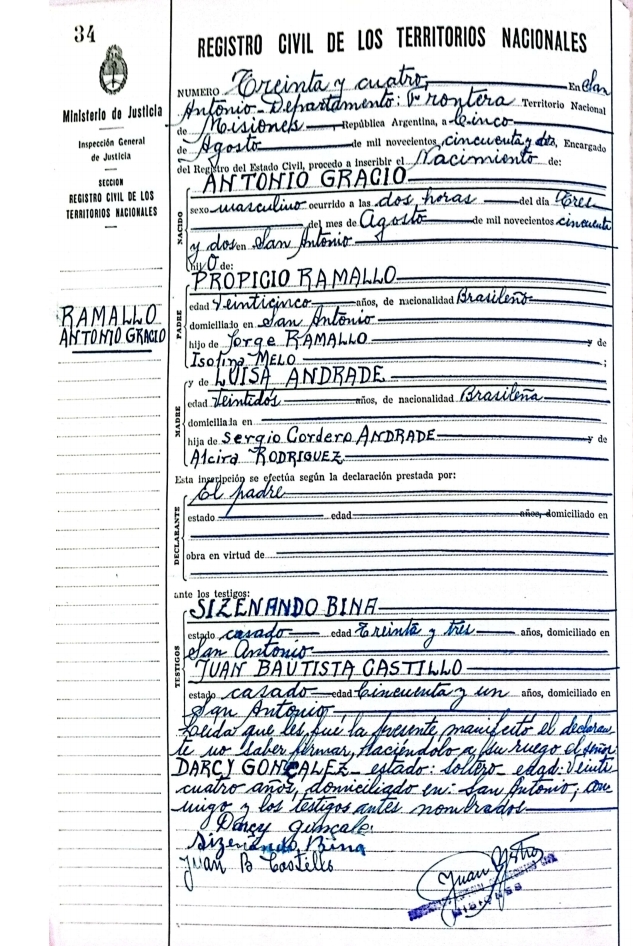 34
Ministerio de Justicia
Inspección General
de Justicia
SECCION
REGISTRO CIVIL DE LOS
TERRITORIOS NACIONALES
RAMALLO
ANTONIO GRACIO
REGISTRO CIVIL DE LOS TERRITORIOS NACIONALES
NUMERO Treinta y cuatro, En San
Antonio - Departamento: Frontera Territorio Nacional
de Misiones, República Argentina, a Cinco
de Agosto de mil novecientos cincuenta y dos, Encargado
del Registro del Estado Civil, procedo a inscribir el Nacimiento de:
NACIDO
ANTONIO GRACIO
sexo masculino ocurrido a las dos horas del día Tres
del mes de Agosto de mil novecientos cincuenta
y dos en San Antonio
hijO de:
PADRE
PROPICIO RAMALLO
edad Veinticinco años, de nacionalidad Brasileño
domiciliado en San Antonio
hijo de Jorge RAMALLO y de
Isolina MELO ;
MADRE
y de LUISA ANDRADE
edad Veintidós años, de nacionalidad Brasileña
domiciliada en
hija de Sergio Cordero ANDRADE y de
Alcira RODRIGUEZ
Esta inscripción se efectúa según la declaración prestada por:
DECLARANTE
El padre
estado edad años, domiciliado en
obra en virtud de
ante los testigos:
TESTIGOS
SIZENANDO BINA
estado casado edad Treinta y tres años, domiciliado en
San Antonio
JUAN BAUTISTA CASTILLO
estado casado edad Cincuenta y un años, domiciliado en
San Antonio
Leida que les fué la presente, manifestó el declaran
te no saber firmar, haciéndolo a su ruego el señor
DARCY GONÇALEZ - estado: soltero - edad: Veinti
cuatro años, domiciliado en: San Antonio; con
migo y los testigos antes nombrados
Darcy Gonçale.
Sizenando Bina
Juan B Castillo
Juan
MISIONES